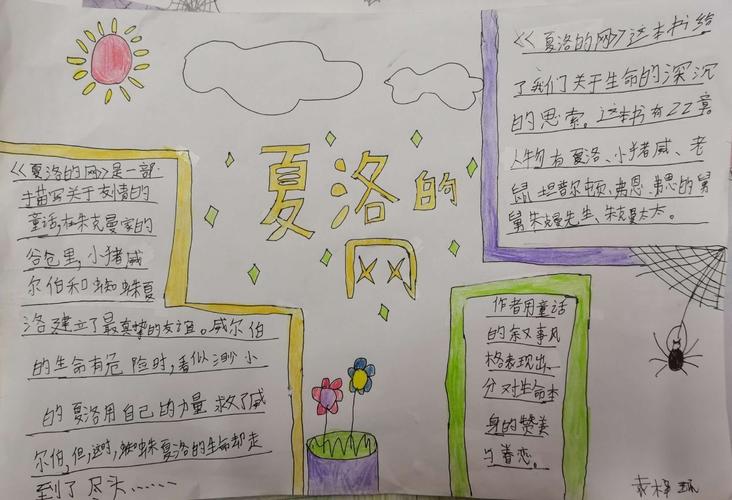 夏洛的
网
《夏洛的网》是一部
描写关于友情的
童话,在朱克曼家的
谷仓里,小猪威
尔伯和蜘蛛夏
洛建立了最真挚的友谊。威尔伯
的生命有危险时,看似渺小
的夏洛用自己的力量救了威
尔伯,但,这时,蜘蛛夏洛的生命却走
到了尽头……
《夏洛的网》这本书给
了我们关于生命的深沉
的思索。这本书有22章
人物有夏洛、小猪威、老
鼠坦普尔顿、弗恩、弗恩的舅
舅朱克曼先生、朱克曼太太。
作者用童话
的叙事风
格表现出
分对生命本
身的赞美
与眷恋。